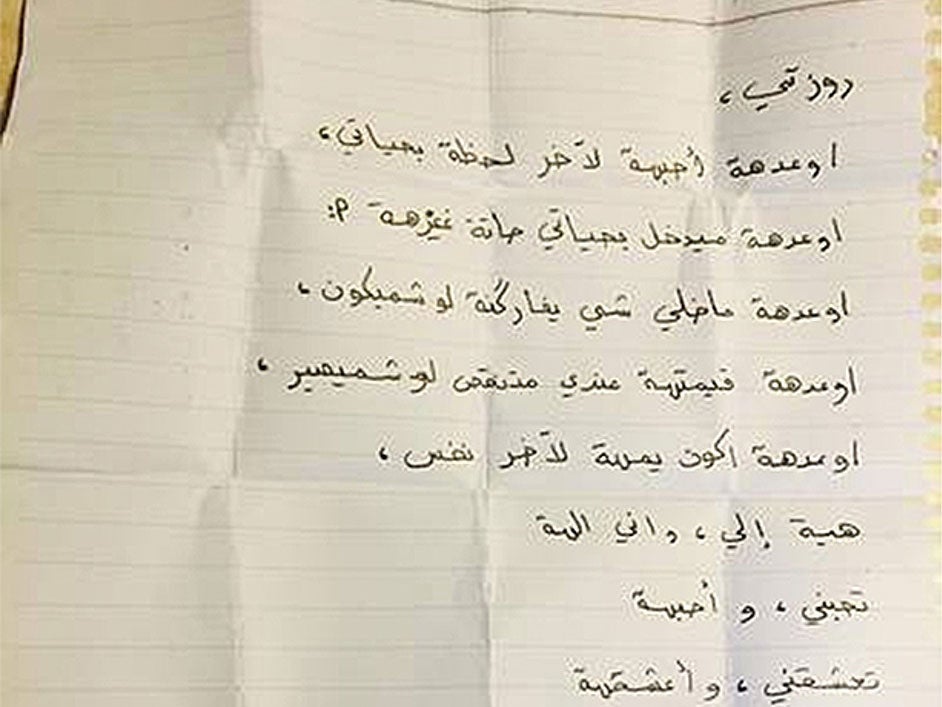 روزتي ،
اوعدهة أحبهة لآخر لحظة بحياتي ،
اوعدهة ميدخل بحياتي حاتة غيرهة :P
اوعدهة ماخلي شي يفاركنة لو شميكون ،
اوعدهة قيمتهة عندي متنقص لو شميصير ،
اوعدهة اكون يمهة لآخر نفس ،
هية إلي ، واني الهة
تحبني ، و أحبهة
تعشقني ، و أعشقهة